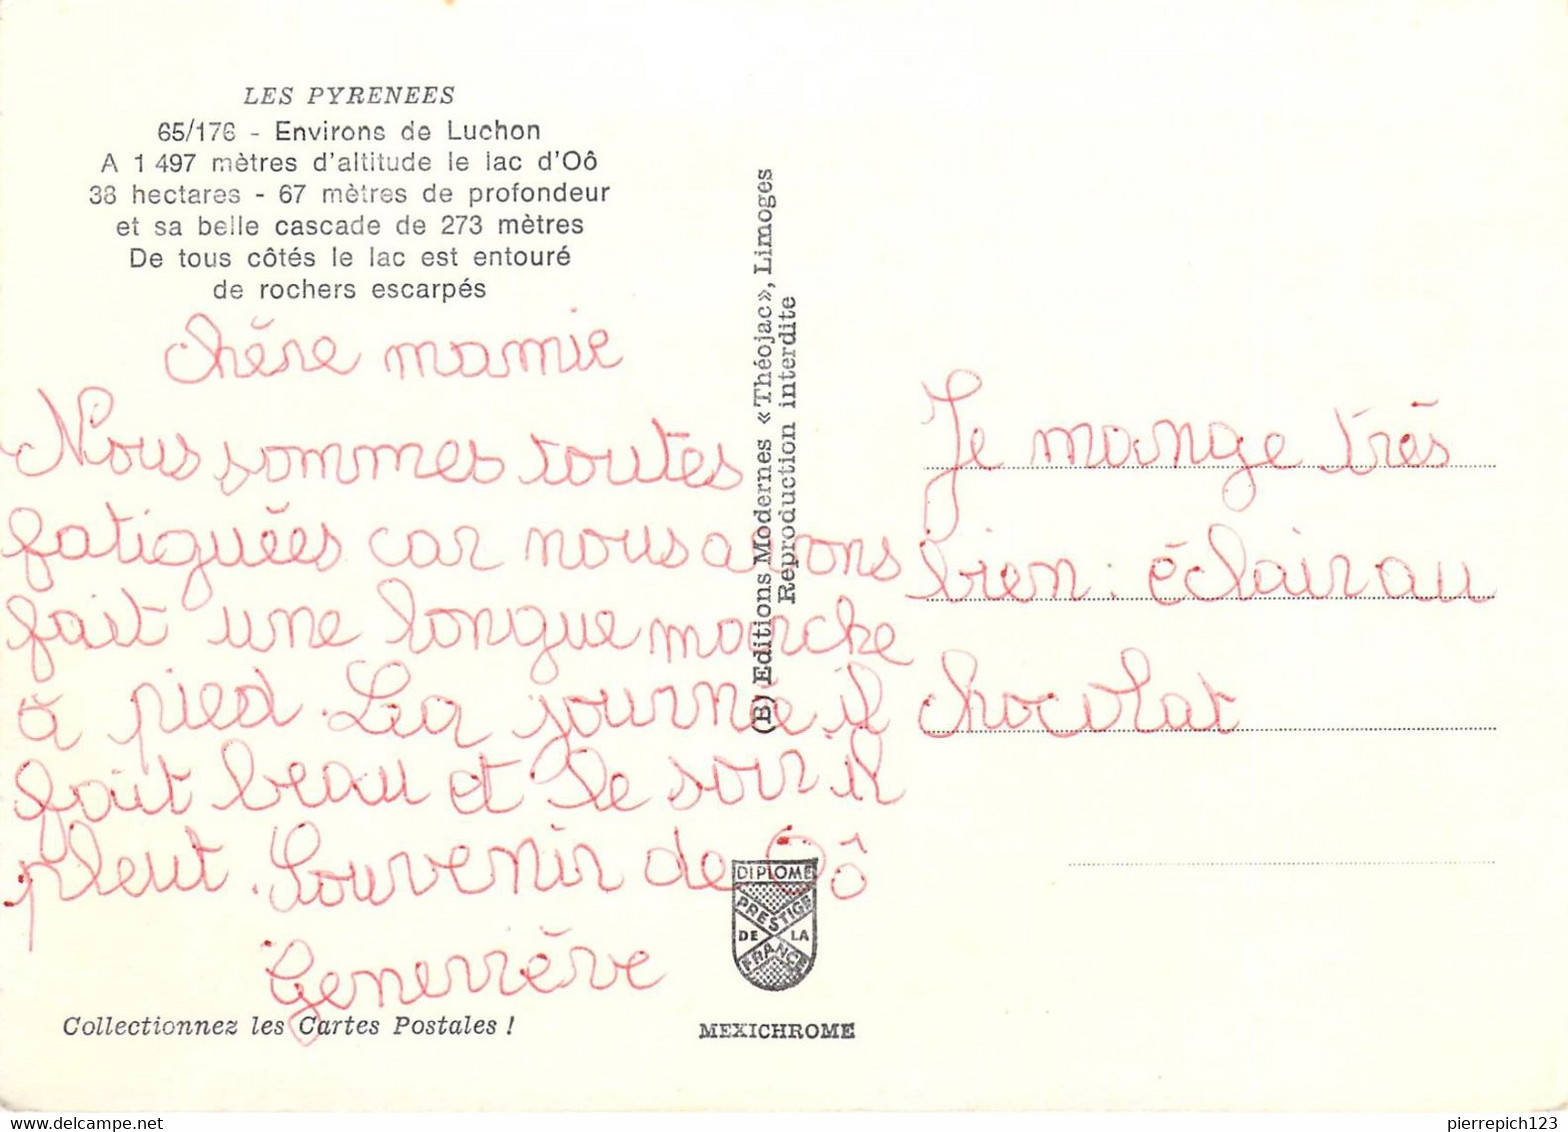 LES PYRENEES
65/176 - Environs de Luchon
A 1 497 mètres d'altitude le lac d'Oô
38 hectares - 67 mètres de profondeur
et sa belle cascade de 273 mètres
De tous côtés le lac est entouré
de rochers escarpés
chère mamie
Nous sommes toutes
fatiguées car nous avons
fait une longue marche
à pied. La journée il
fait beau et le soir il
pleut. Souvenir de Oô
Geneviève
Collectionnez les Cartes Postales !
(B) Editions Modernes «Théojac», Limoges
Reproduction interdite
DIPLOME
PRESTIGE
DE LA
FRANCE
MEXICHROME
Je mange très
bien : éclair au
chocolat
pierrepich123